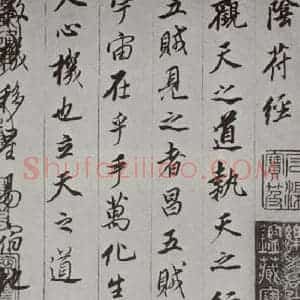 陰苻經
觀天之道執天之行
五賊見之者昌五賊
宇宙在乎手萬化生
人心機也立天之道
機移星易宿地
Shufaziliao.COM